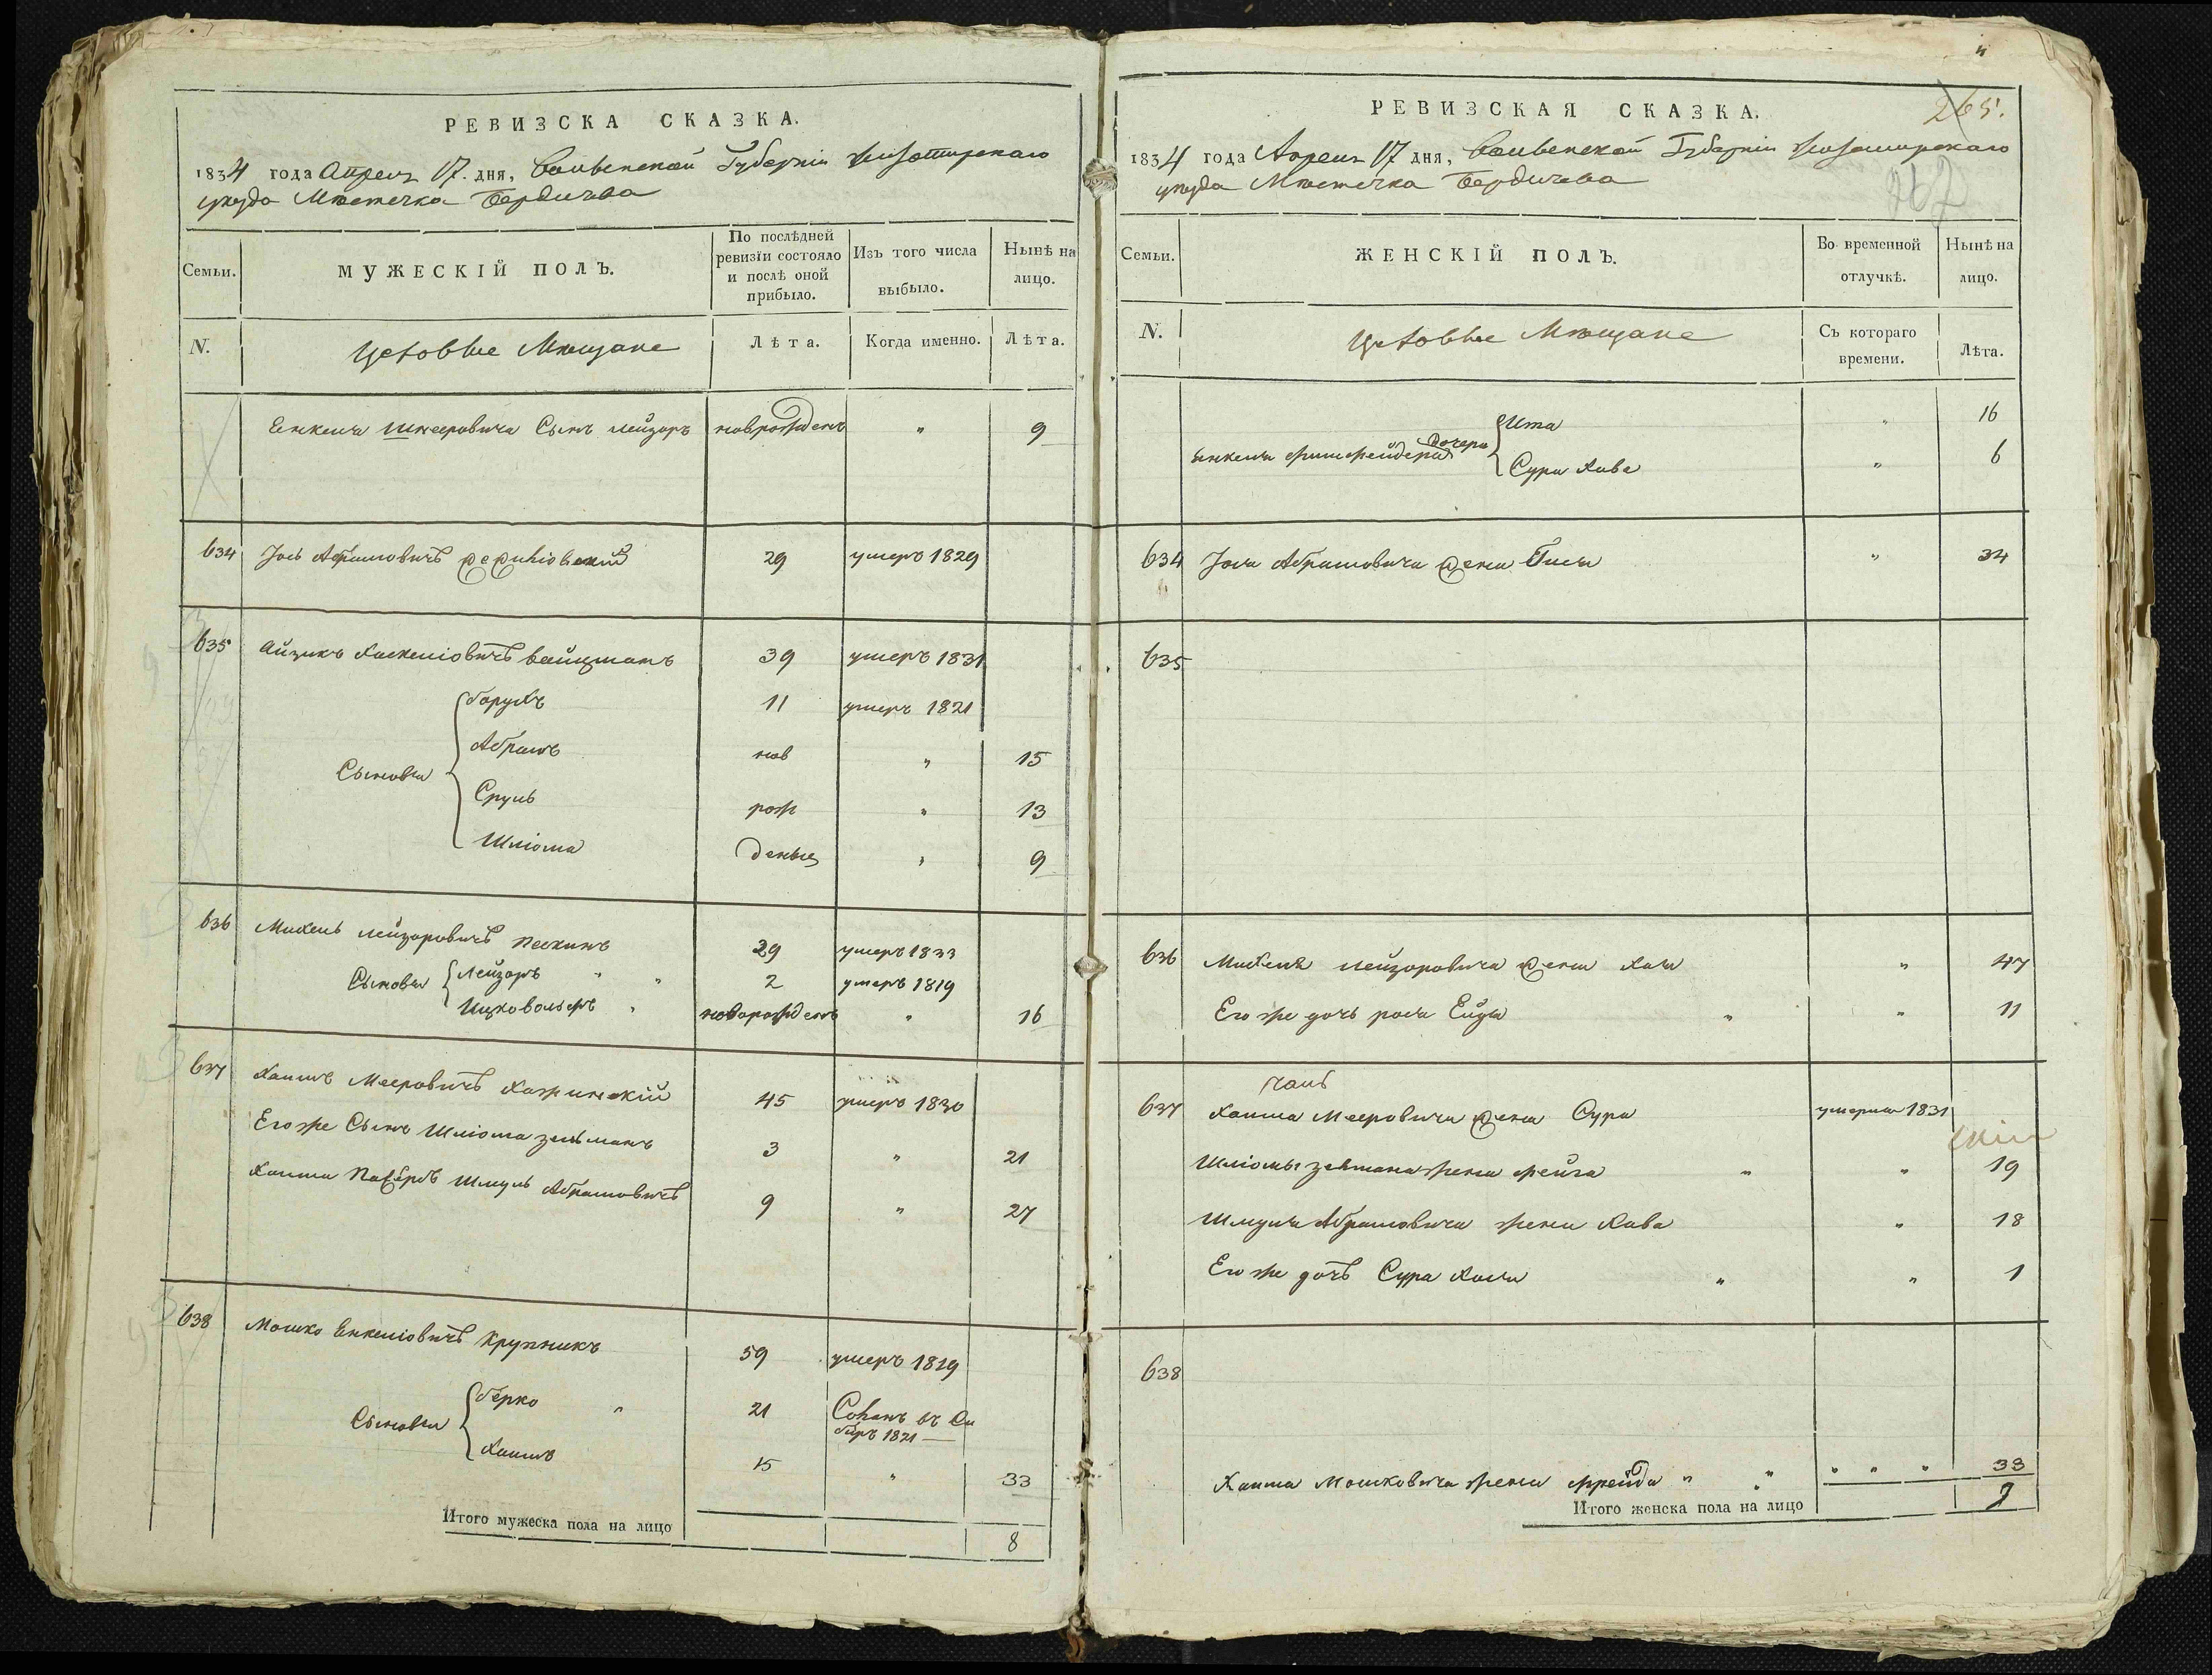 РЕВИЗСКА СКАЗКА.
1834 года Апреля 17. дня, Волынской Губерніи Житомирскаго
уезда Местечка Бердичева
Семьи.
МУЖЕСКІЙ ПОЛЪ.
По послѣдней ревизіи состояло и послѣ оной прибыло.
Изъ того числа выбыло.
Нынѣ на лицо.
N.
Цеховые Мещане
Лѣта.
Когда именно.
Лѣта.
Енкеля Сынъ Лейзоръ новорожденъ " 9
634 Іось Абрамовичъ 29 умеръ 1829
635 Айзикъ Хаскеліовичъ Вайцманъ 39 умеръ 1831
Сыновья
Борухъ 11 умеръ 1821
Абрамъ нов " 15
Сруль рож " 13
Шліома дены " 9
636 Михель Лейзоровичъ Пескинъ 29 умеръ 1833
Сыновья
Лейзоръ " " 2 умеръ 1819
Ицко Вольфъ " новорожденъ " 16
637 Хаимъ Мееровичъ Хажинскій 45 умеръ 1830
Его же Сынъ Шліома Зельманъ 3 " 21
Хаима Шмуль Абрамовичъ 9 " 27
638 Мошко Енкеліовичъ Крупникъ 59 умеръ 1819
Сыновья
Берко " 21 Сосланъ въ Си
биръ 1821
Хаимъ 15 " 33
Итого мужеска пола на лицо 8
265.
РЕВИЗСКАЯ СКАЗКА.
1834 года Апреля 17 дня, Волынской Губерніи Житомирскаго
уезда Местечка Бердичева
267
Семьи.
ЖЕНСКІЙ ПОЛЪ.
Во временной отлучкѣ.
Нынѣ на лицо.
N.
Цеховые Мещане
Съ котораго времени.
Лѣта.
Енкеля дочери
Ита " 16
Сура Хава " 6
634 Іося Абрамовича жена " 34
635
636 Михеля Лейзоровича жена Хая " 47
Его же дочь Рося Ейдя " " 11
637 Хаима Мееровича жена Сура умерла 1831
Шліомы Зельмана жена Фейга " " 19
Шмуля Абрамовича жена Хава " 18
Его же дочь Сура Хая " " 1
638
Хаима Мошковича жена Фрейда " " " " " 33
Итого женска пола на лицо 9